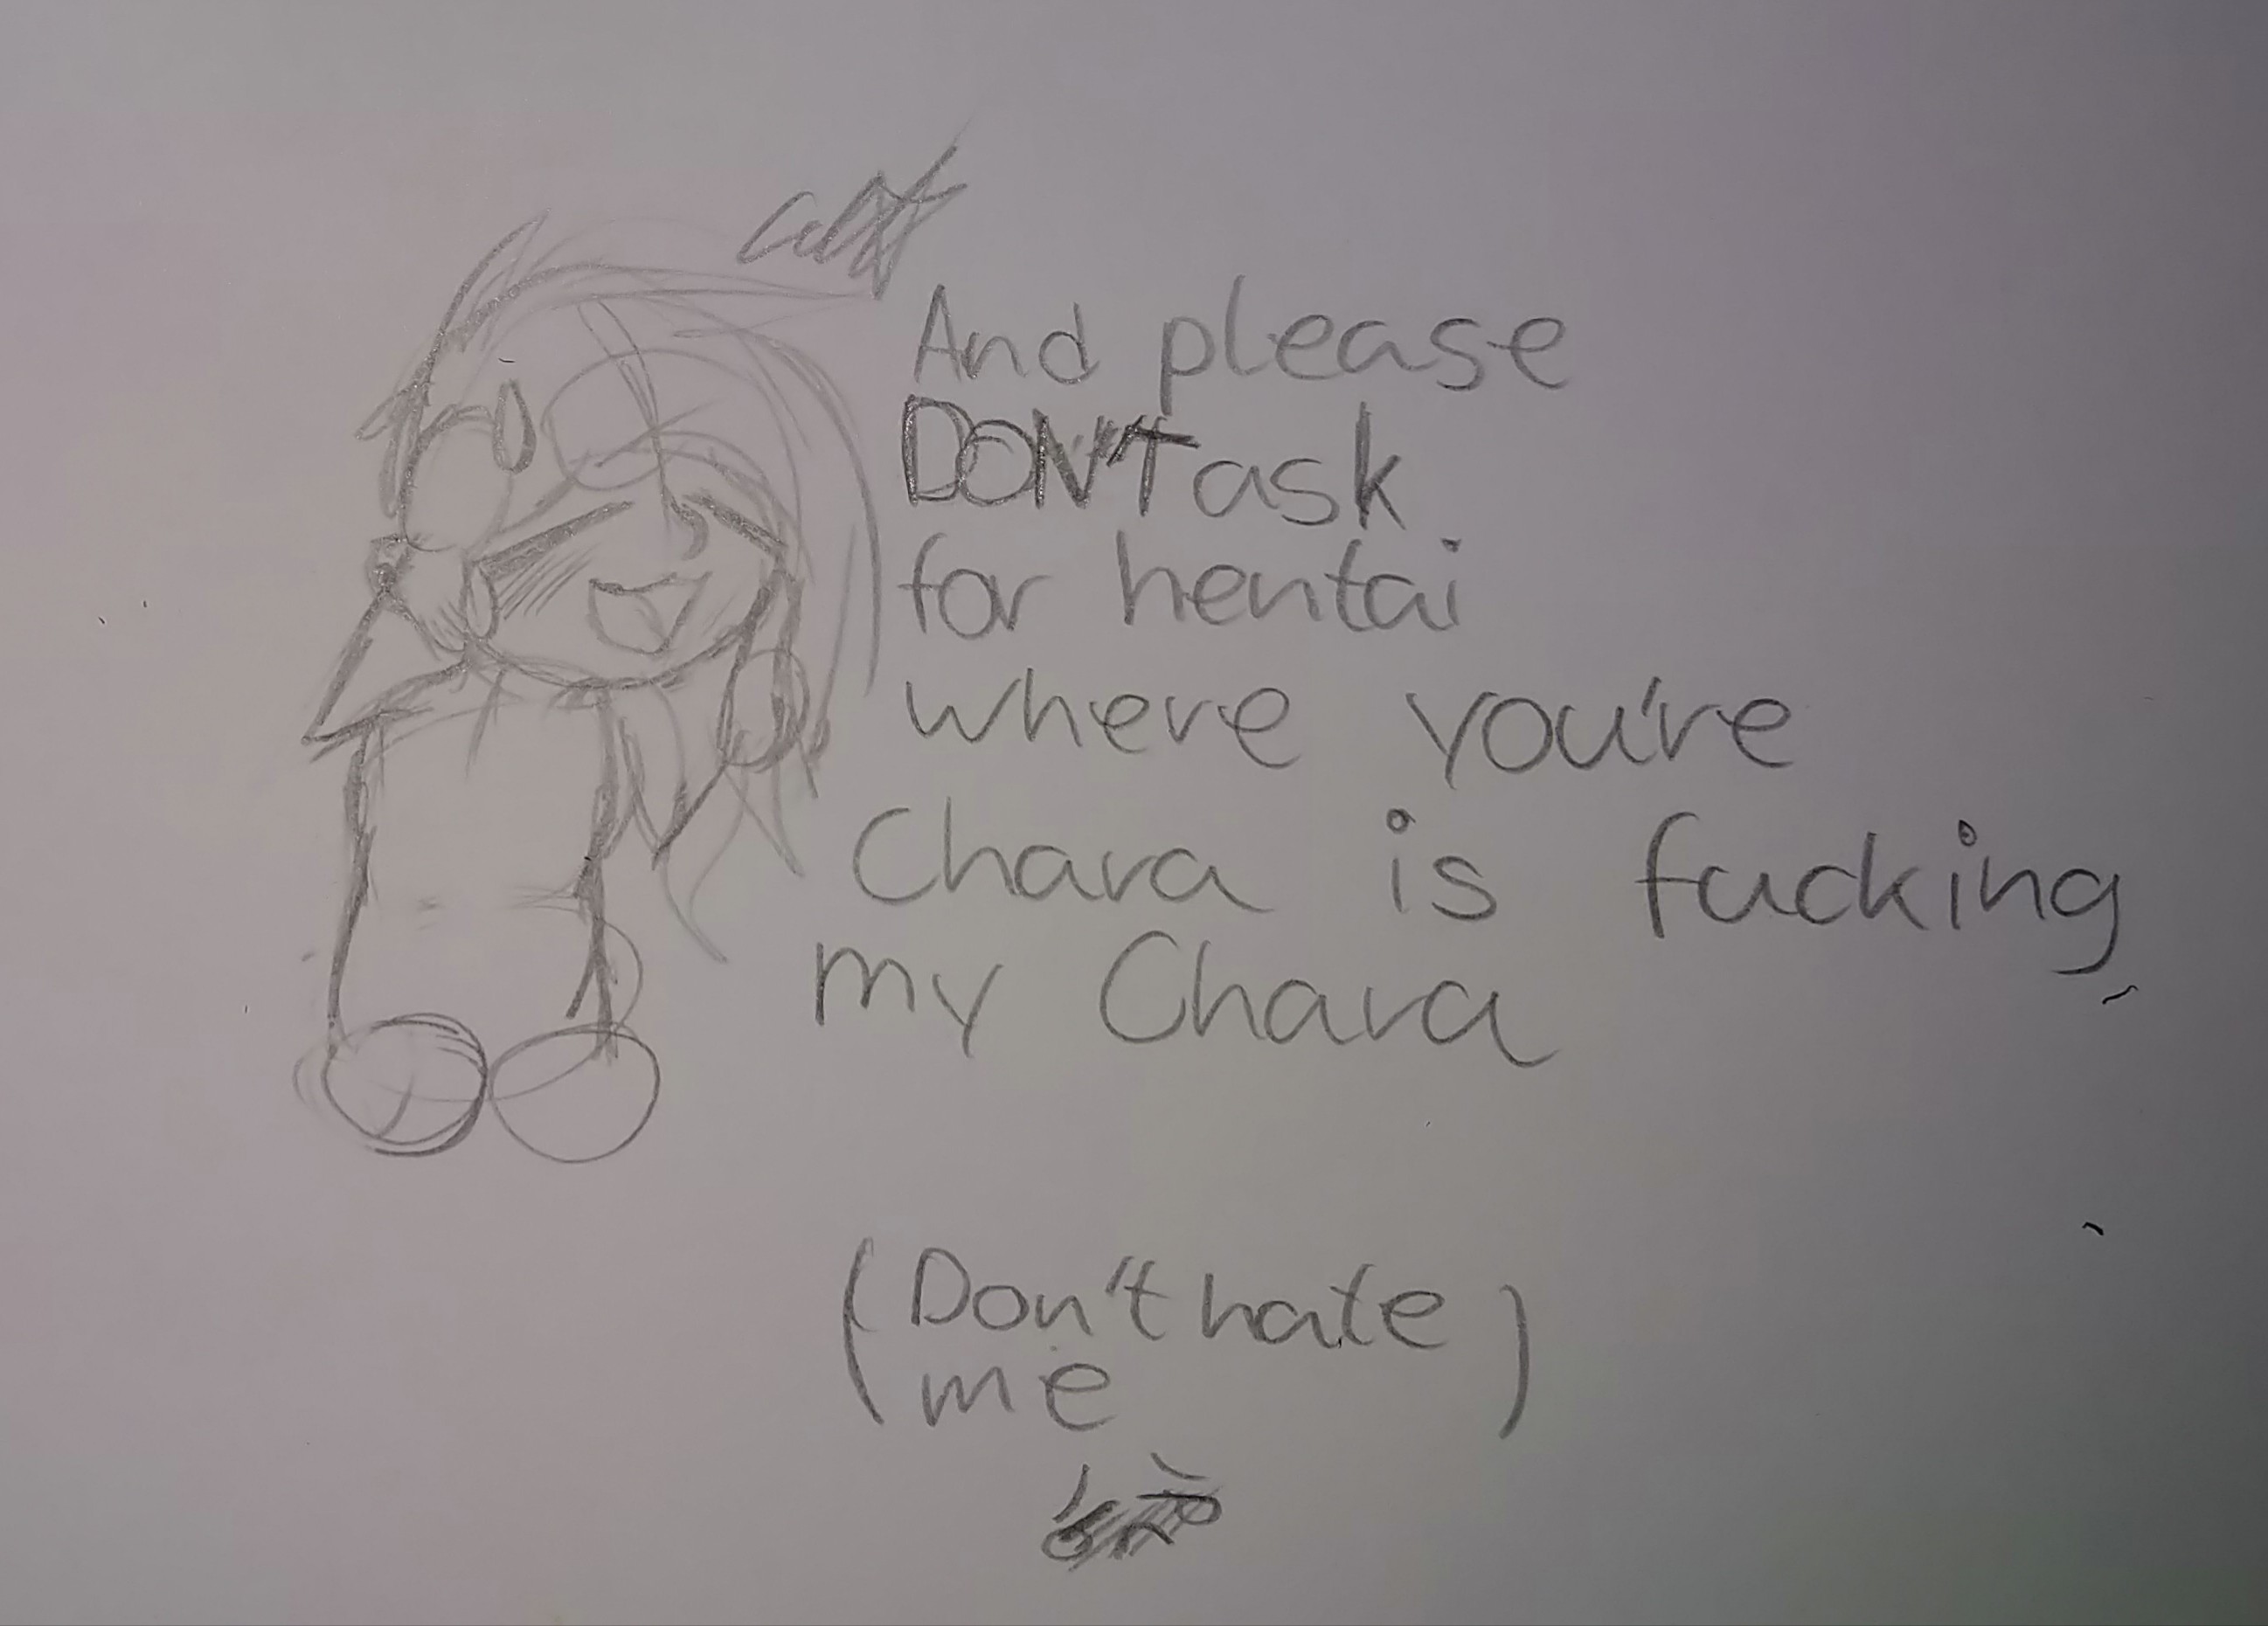 And please
DON'T ask
for hentai
where you're
Chara is fucking
my Chara
(Don't hate
me)